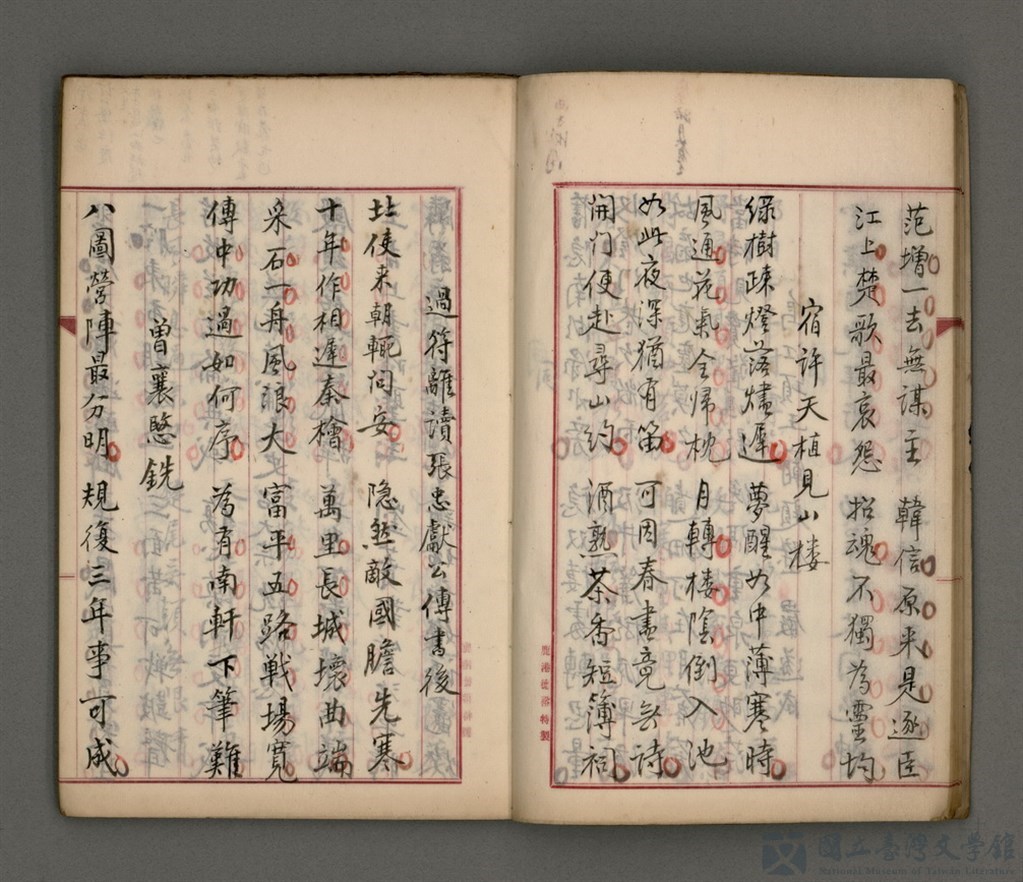 范增一去無謀主 韓信原来是逐臣
江上楚歌最哀怨 招魂不獨為靈均
宿許天植見山楼
綠樹疎燈落燼遲 夢醒如中薄寒時
風通花氣全帰枕 月轉楼陰倒入池
如此夜深猶有笛 可因春盡竟無詩
開门便赴尋山约 酒熟茶香短簿祠
過符離讀張忠獻公傳書後
北使来朝輒问安 隐然敵國膽先寒
十年作相遲秦檜 萬里長城壞曲端
采石一舟風浪大 富平五路戦場寛
傳中功過如何序 為有南軒下筆難
曽襄愍銑
八圖營陣最分明 規復三年事可成
鹿港
特製
國立臺灣文學館
National Museum of Taiwan Literature